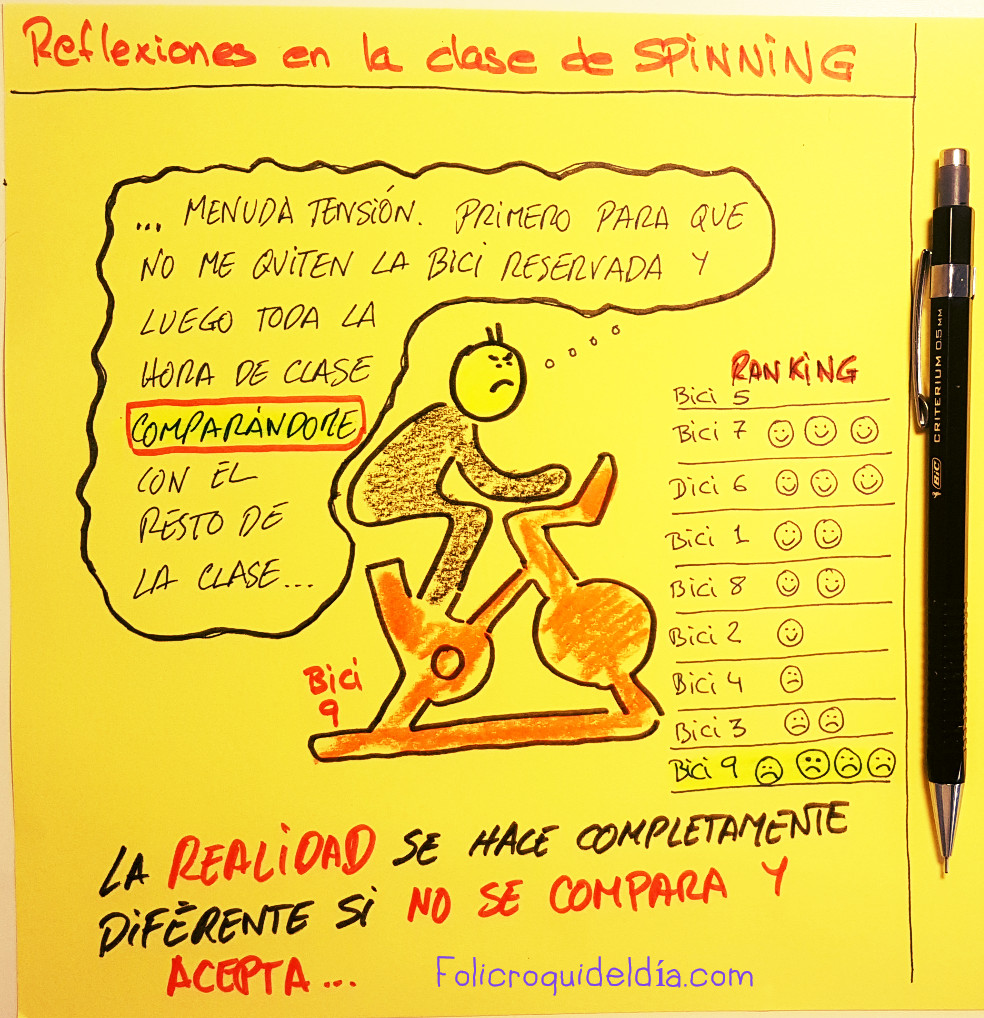 Reflexiones en la clase de SPINNING
... MENUDA TENSIÓN. PRIMERO PARA QUE
NO ME QUITEN LA BICI RESERVADA Y
LUEGO TODA LA
HORA DE CLASE
COMPARÁNDOME
CON EL
RESTO DE
LA CLASE...
RANKING
Bici 5
Bici 7
Bici 6
Bici 1
Bici 8
Bici 2
Bici 4
Bici 3
Bici 9
Bici
9
LA REALIDAD SE HACE COMPLETAMENTE
DIFÉRENTE SI NO SE COMPARA Y
ACEPTA...
Folicroquideldía.com
BIC CRITERIUM 0.5 MM